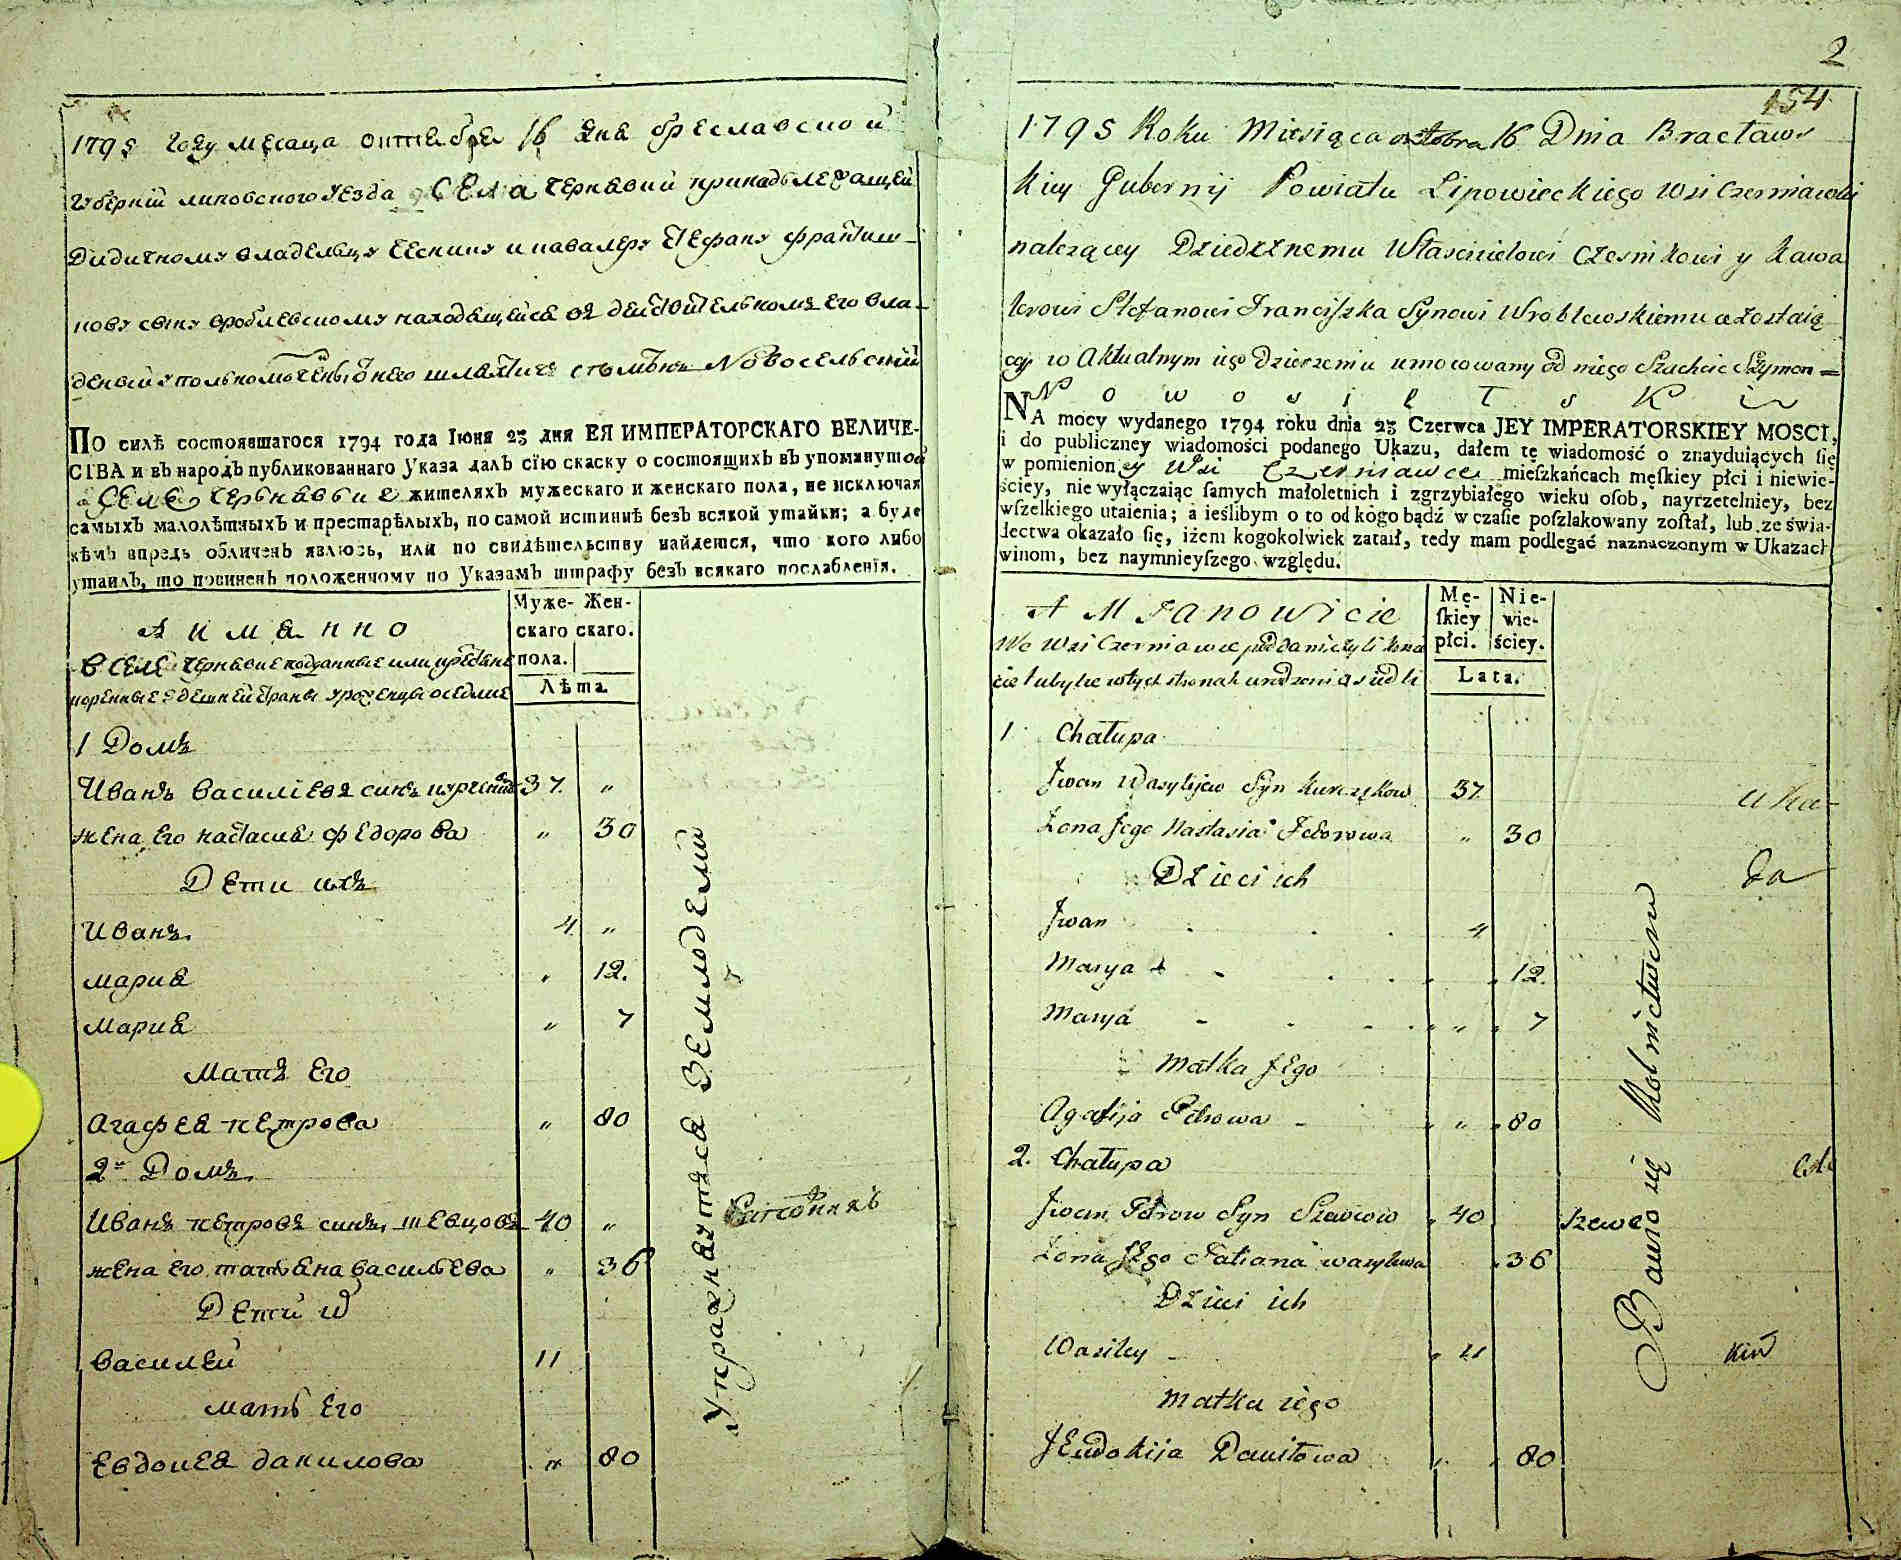 1795 году месаца октебре 16 дне бреславской
Губернии липовского уезда села Чернавки принадьлежащей
Дидичному владельцу Ческику и кавалеру Стефану Франциш-
кову сыну вроблевскому находещейсе въ действительномъ его вла-
деньи упольномоченый от него шлехтичъ Новосельский
По силѣ состоявшагося 1794 года Іюня 23 дня ЕЯ ИМПЕРАТОРСКАГО ВЕЛИЧЕ-
СТВА и въ народъ публикованнаго Указа далъ сїю скаску о состоящихъ въ упомянутой
селе Черьнавьке жителяхъ мужескаго и женскаго пола, не исключая
самыхъ малолѣтныхъ и престарѣлыхъ, по самой истиннѣ безъ всякой утайки; а буде
кѣмъ впредь обличенъ явлюсь, или по свидѣтельству найдется, что кого либо
утаилъ, то повиненъ положенному по Указамъ штрафу безъ всякаго послабленїя.
А имѣнно
Муже-
скаго
пола.
Жен-
скаго.
Лѣта
в селе Чернавке подданные или крестяне
коренные здешней страны уроженцы оседлие
1 Домъ
Иванъ василіевъ синъ 37 "
жена его настасия федорова " 30
Дети ихъ
Иванъ 4 "
мариа " 12.
мариа " 7
мать его
агафеа петрова " 80
2й Домъ
Иванъ петровъ синъ шевцовъ 40 "
жена его татьѣна васильева " 36
Дети их
василей 11
мать его
евдокеа данилова " 80
Упражнаутся Земледелиемъ
2
154
1795 Roku Miesiąca oktobra 16 Dnia Bracławs
kiey Gubernij Powiatu Lipowieckiego wsi Czerniawki
należącey Dziedzznemu Właścicielowi Czesnikowi y kawa
lerowi Stefanowi Franciszka Synowi Wroblewskiemu a zostaią
cey w aktualnym iego dzierzeniu umocowany od niego Szlachcic Szymon
Nowosilski
NA mocy wydanego 1794 roku dnia 23 Czerwca JEY IMPERATORSKIEY MOSCI,
i do publiczney wiadomości podanego Ukazu, dałem tę wiadomość o znayduiących się
w pomienioney Wsi Czerniawce mieszkańcach męskiey płci i niewie-
ściey, nie wyłączaiąc samych małoletnich i zgrzybiałego wieku osob, nayrzetelniey, bez
wszelkiego utaienia; a ieślibym o to od kogo bądź w czasie poszlakowany został, lub ze świa-
dectwa okazało się, iżem kogokolwiek zataił, tedy mam podlegać naznaczonym w Ukazach
winom, bez naymnieyszego względu.
A Mianowicie
Mę-
skiey
płci.
Nie-
wie-
ściey.
Lata.
We Wsi Czerniawce poddani czyli
1 Chałupa
Jwan Wasylijew Syn kurczykow 37
Zona Jego Nastasia Fedorowa " 30
Dzieci ich
Jwan 4
Marya " 12.
Marya " 7
Matka Jego
Agafija Petrowa " 80
2. Chałupa
Jwan Petrow Syn Szewcow 40
Zona Jego Tatiana wasylewa 36
Dzieci ich
Wasiley 11
Matka iego
JEwdokija Daniłowa " 80
Bawio się Rolnictwem